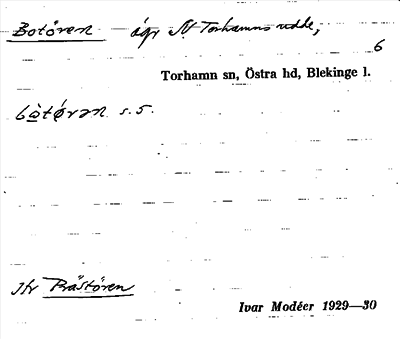 Botören ägr N Torhamns udde,
6
Torhamn sn, Östra hd, Blekinge l.
bòtǿrən s. 5.
Jfr Prästören
Ivar Modéer 1929—30